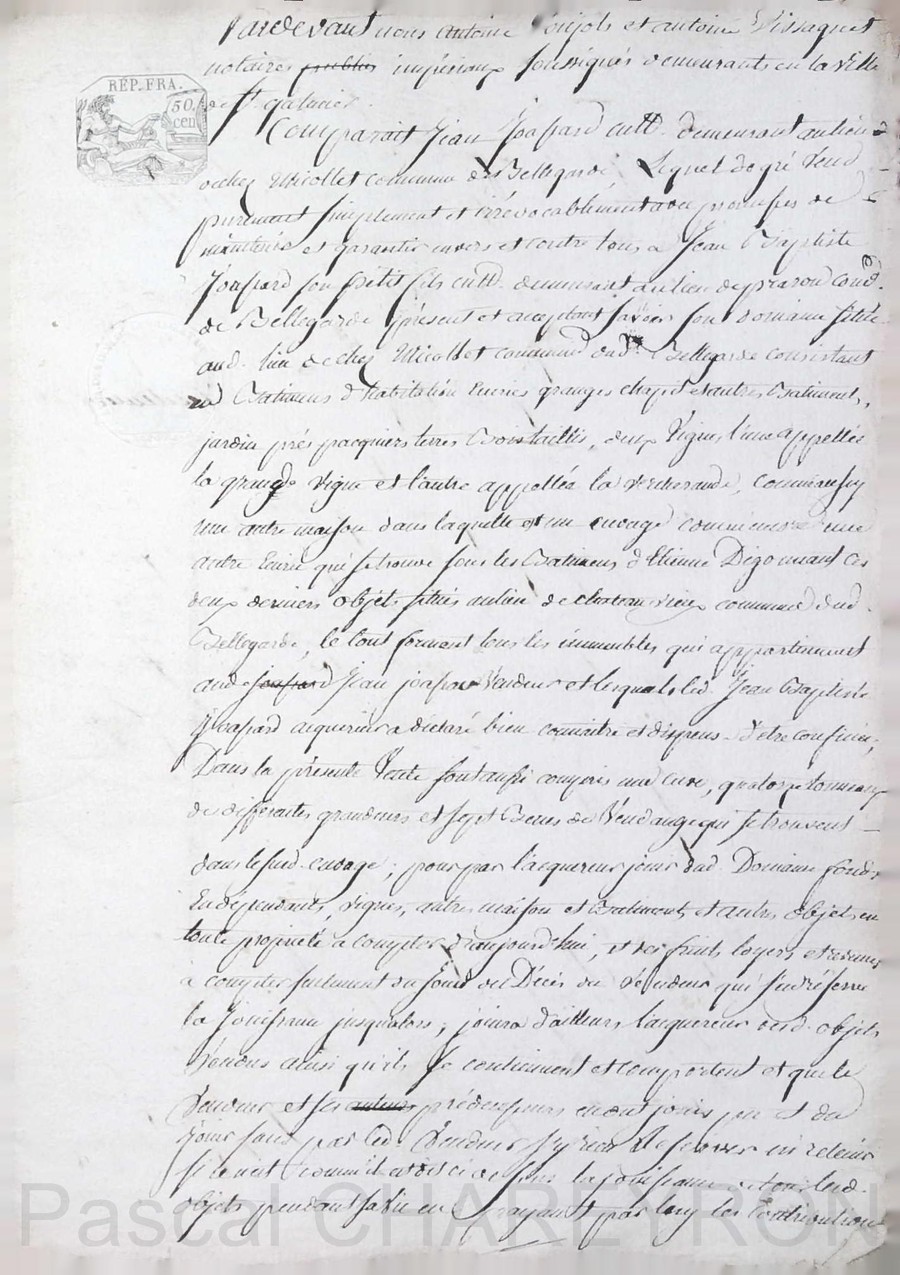 Pardevant nous antoine et antoine Vissaguet
notaires publics impériaux soussignés demeurants en la ville
de St galmier.
RÉP. FRA.
50 cen
Comparait Jean Joassard cultr. demeurant au lieu
de chez Micollet commune de Bellegarde, Lequel de gré vend
purement simplement et irrévocablement avec promesses de
maintenir et garantir envers et contre tous a Jean Baptiste
Joassard son petit fils cultr. demeurant au lieu de
de Bellegarde présent et acceptant savoir son domaine situé
aud. lieu de chez Micollet commune dud. Bellegarde consistant
en Batimens d'habitation Ecuries granges chapit et autres Batiments,
jardin prés pacquiers terres Bois taillis, deux vignes l'une appellée
la grande vigne et l'autre appellée la comme aussy
une autre maison dans laquelle est un cuvage une
autre Ecurie qui se trouve sous les Batimens d'Etienne ces
deux derniers objets situés au lieu de chateau vieux commune dud.
Bellegarde, le tout formant tous les immeubles qui appartiennent
aud. Joassard Jean joassard Vendeur et lesquels led. Jean Baptiste
Joassard acquereur a déclaré bien connaitre et dispense d'etre confinés;
Dans la présente Vente sont aussi compris une cuve, quatorze tonneaux
de differentes grandeurs et sept Benes de Vendange qui se trouvent
dans le sud. cuvage; pour par l'acquereur jouir dud. Domaine fonds
En dépendants, vignes, autre maison et Batiments, et autres objets en
toute propriété a compter d'aujourd'hui, et des fruits loyers et revenus
a compter seulement du jour du Décès du Vendeur qui s'en réserve
la jouissance jusqu'alors; jouira d'ailleurs l'acquereur desd. objets
Vendus ainsi qu'ils se contiennent et comportent et que le
Vendeur et ses auteurs prédecesseurs en ont joui pu et du
jouir sans par led. Vendeur s'y rien réserver ni retenir
si ce n'est comme il a dit ci dessus la jouissance de tous lesd.
objets pendant sa vie en payant par luy les contributions
Pascal CHAREYRON